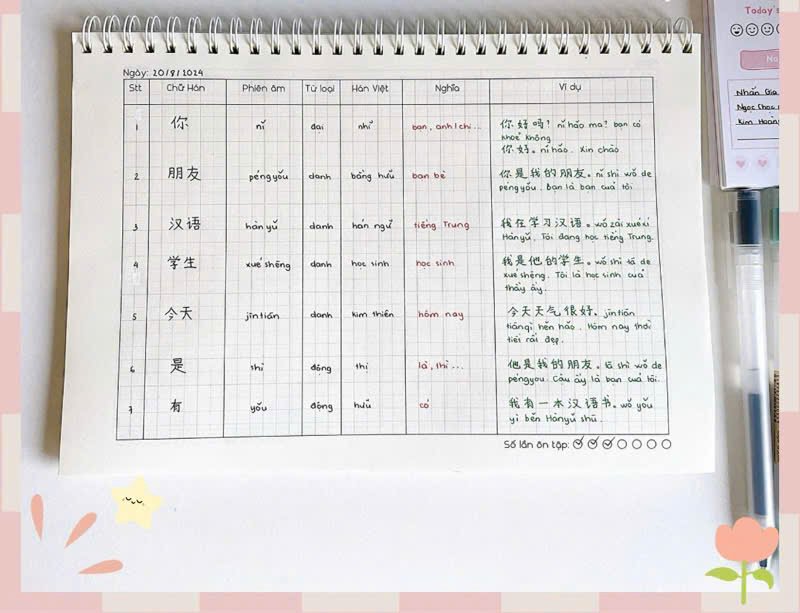 Ngày: 20/8/2024
Stt Chữ Hán Phiên âm Từ loại Hán Việt Nghĩa Ví dụ
1 你 nǐ đại nhĩ bạn, anh/chị... 你好吗? nǐ hǎo ma? bạn có
khoẻ không
你好。nǐ hǎo. Xin chào
2 朋友 péngyǒu danh bằng hữu bạn bè 你是我的朋友。nǐ shì wǒ de
péngyou. Bạn là bạn của tôi
3 汉语 hànyǔ danh hán ngữ tiếng Trung 我在学习汉语。wǒ zài xuéxí
Hànyǔ. Tôi đang học tiếng Trung.
4 学生 xuéshēng danh học sinh học sinh 我是他的学生。wǒ shì tā de
xuéshēng. Tôi là học sinh của
thầy ấy.
5 今天 jīntiān danh kim thiên hôm nay 今天天气很好。jīntiān
tiānqì hěn hǎo. Hôm nay thời
tiết rất đẹp.
6 是 shì động thị là, thì... 他是我的朋友。tā shì wǒ de
péngyou. Cậu ấy là bạn của tôi.
7 有 yǒu động hữu có 我有一本汉语书。wǒ yǒu
yì běn Hànyǔ shū.
Số lần ôn tập:
Today's
Nhấn Gia
Ngọc Chau
Kim Hoàng